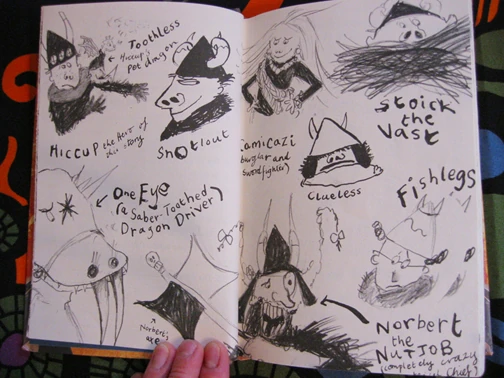 Toothless
Hiccup's
pet dragon
HICCUP the Hero of
this story
Snotlout
One Eye
(a Saber-Toothed
Dragon Driver)
Norbert's
axe
Camicazi
burglar and
Swordfighter)
Stoick
the
Vast
CLUELESS
Fishlegs
Norbert
the
NUTJOB
(completely crazy
Chief)